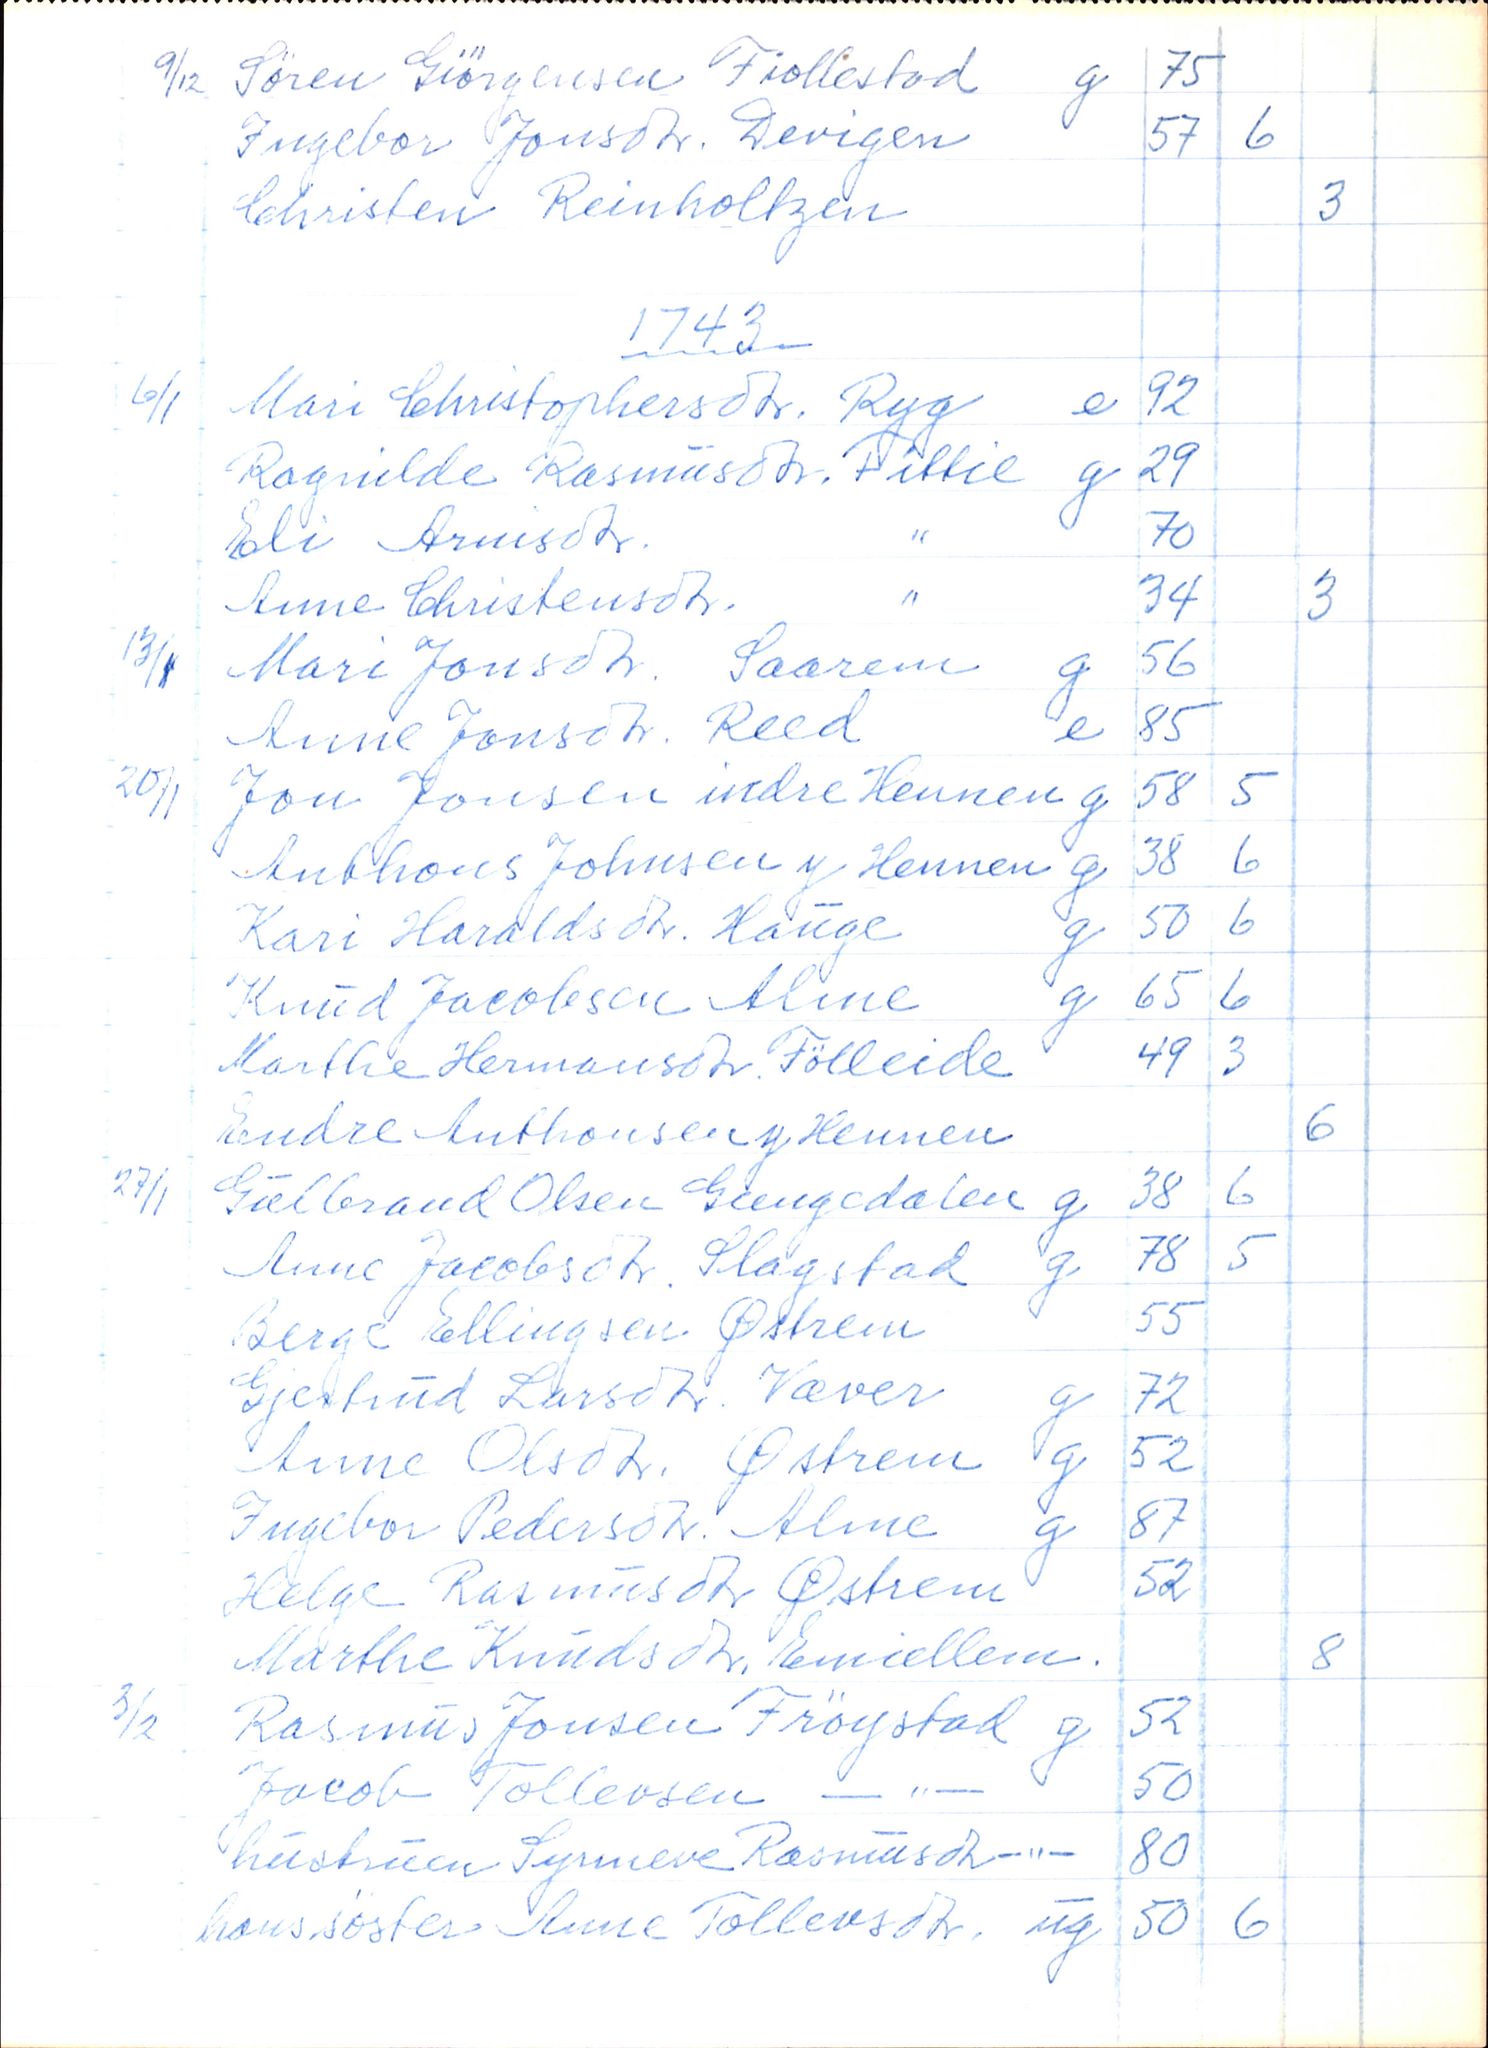 9/12 Sören Giörgensen Fiollestad g 75
Ingebor Jonsdtr. Devigen 57 6
Christen Reinholtzen 3
1743
6/1 Mari Christophersdtr. Ryg e 92
Ragnilde Rasmusdtr. Fittie g 29
Eli Arnisdtr. " 70
Anne Christensdtr. " 34 3
13/1 Mari Jonsdtr. Saarem g 56
Anne Jonsdtr. Reed e 85
20/1 Jon Jonsen indre Hennen g 58 5
Anthons Johnsen y Hennen g 38 6
Kari Haraldsdtr. Hauge g 50 6
Knud Jacobsen Alme g 65 6
Marthe Hermansdtr. Fölleide 49 3
Endre Anthonsen y Hennen 6
27/1 Gulbrand Olsen Grengedalen g 38 6
Anne Jacobsdtr. Slagstad g 78 5
Berge Ellingsen Østrem 55
Gjertrud Larsdtr. Væver g 72
Anne Olsdtr. Østrem g 52
Ingebor Pedersdtr. Alme g 87
Helge Rasmusdtr Østrem 52
Marthe Knudsdtr. Emiellem. 8
3/2 Rasmus Jonsen Fröystad g 52
Jacob Tollevsen — " — 50
hustruen Synneve Rasmusdtr — " — 80
hans söster Anne Tollevsdtr. ug 50 6